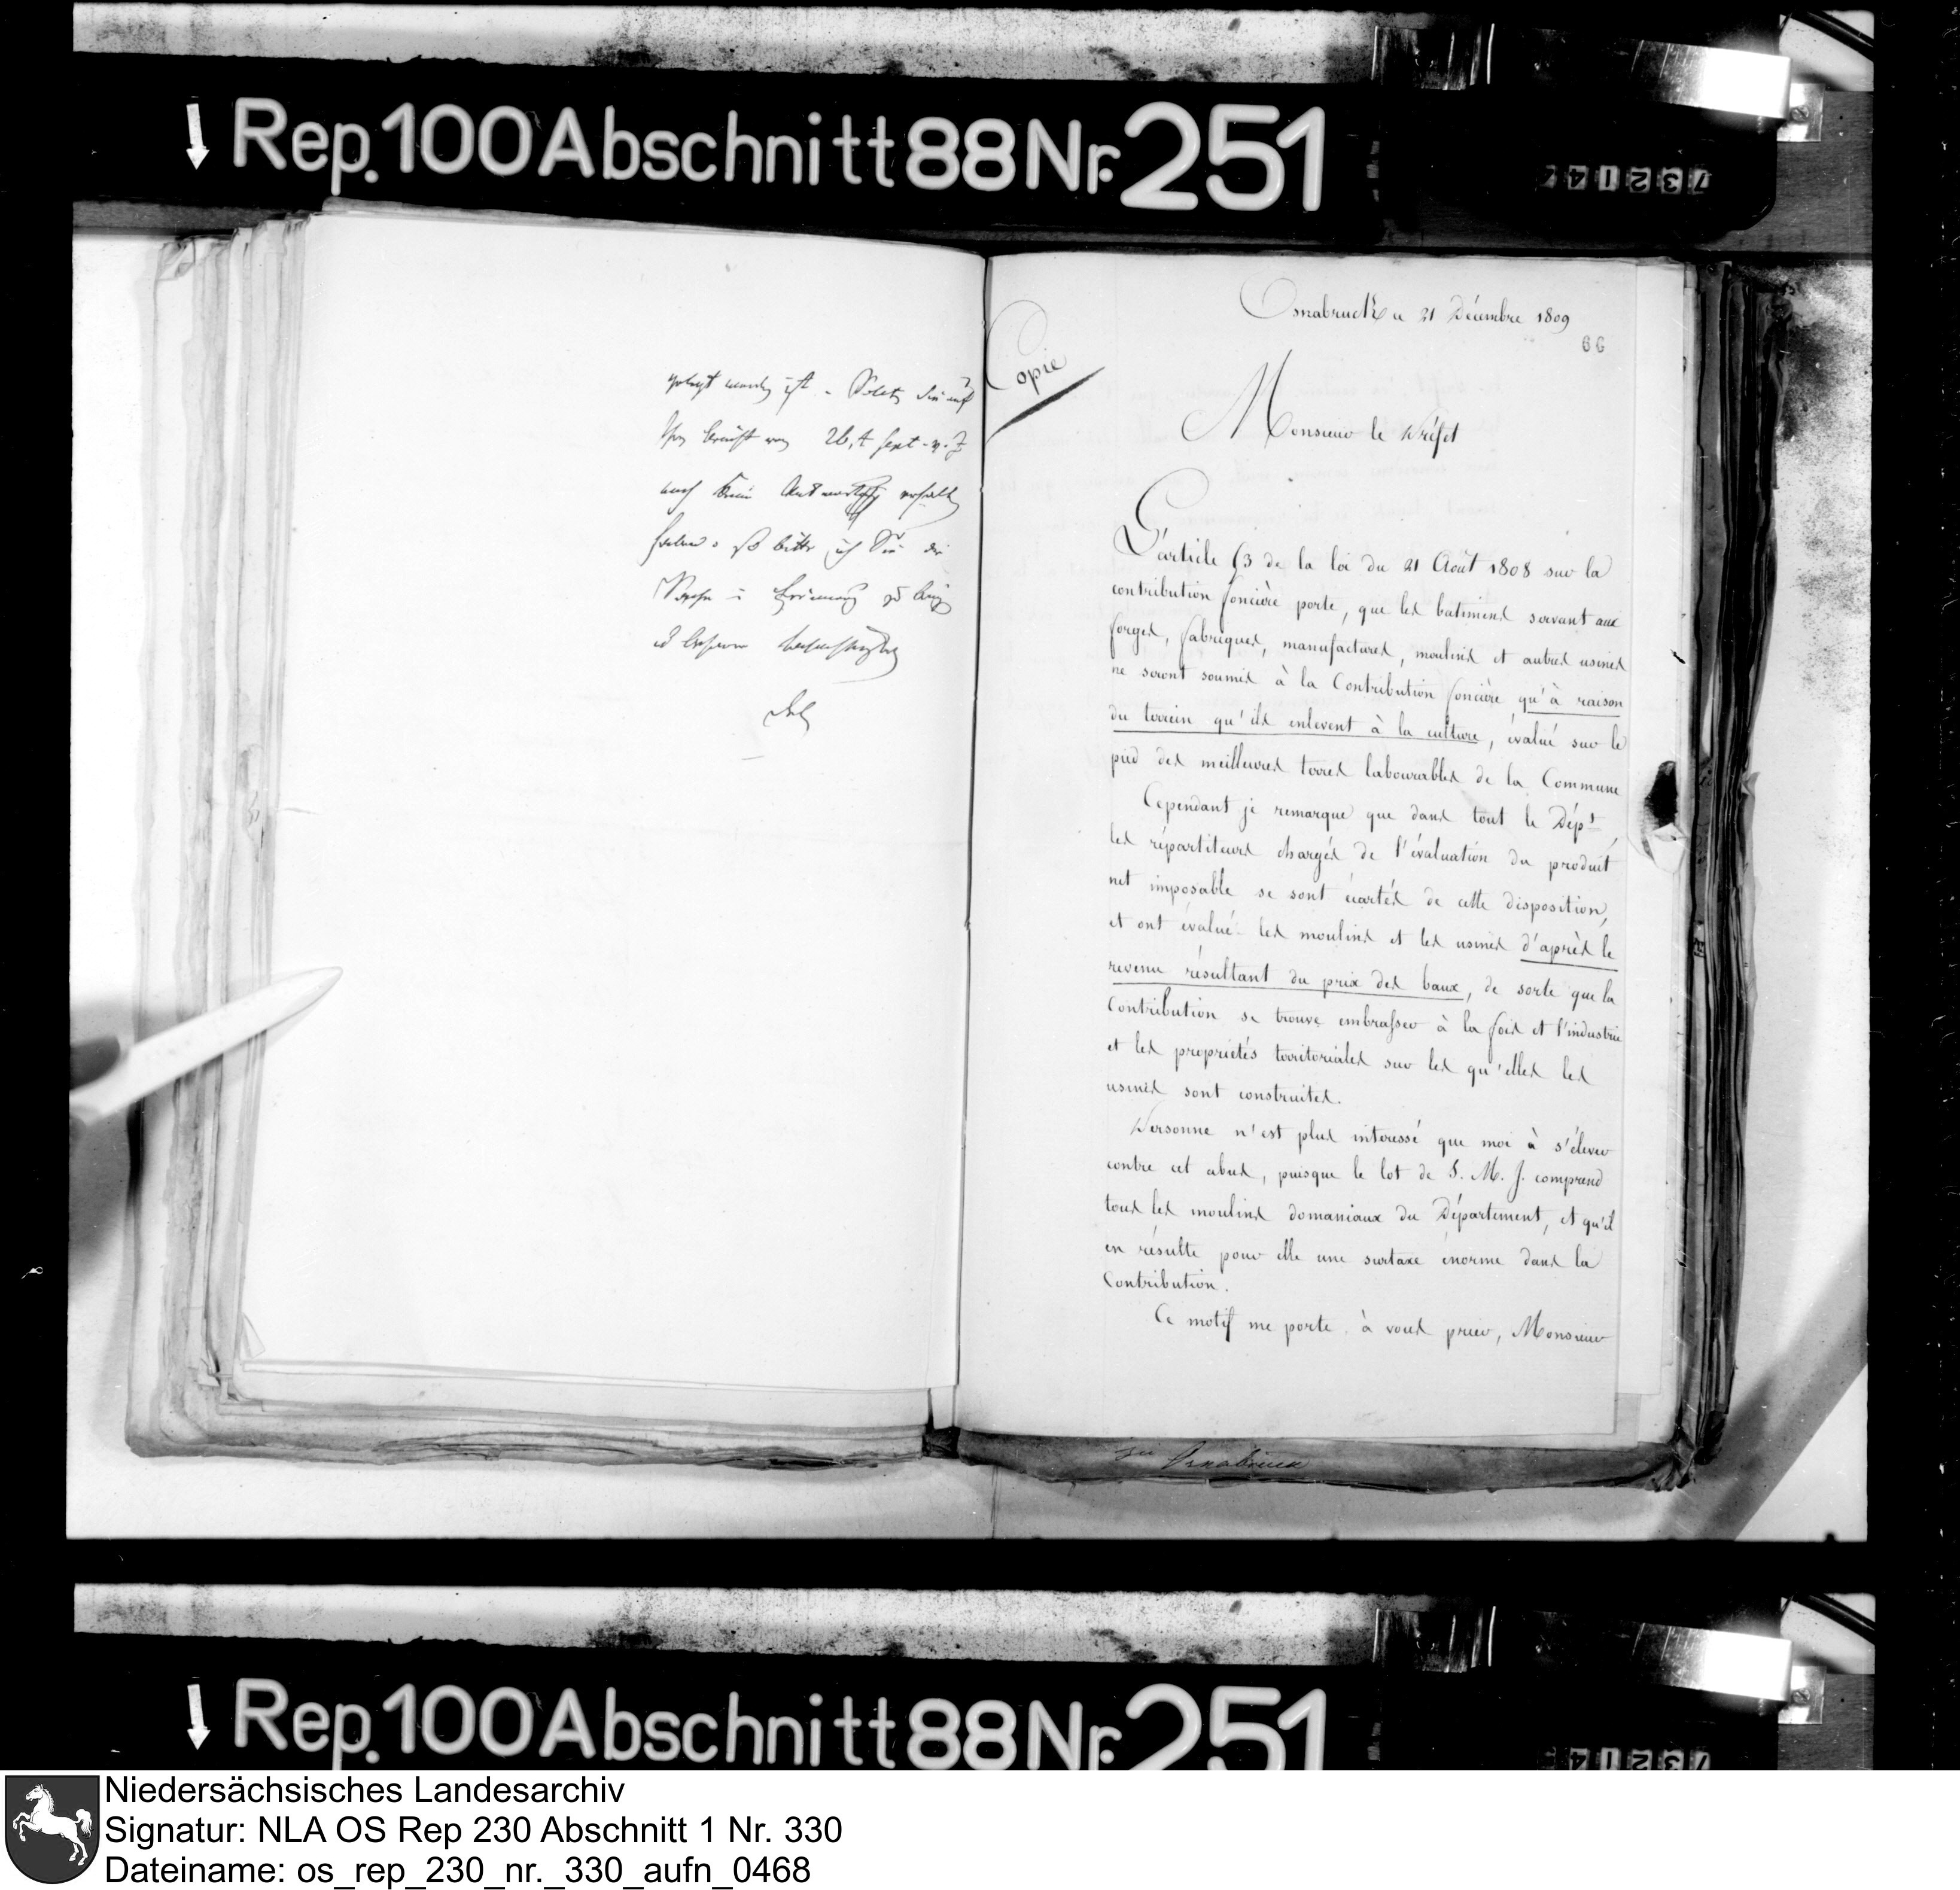 Rep. 100 Abschnitt 88 Nr. 251
732141
ist. Sollten Sie auf
Ihren Bericht vom 26.t Sept. v. J.
noch keine Antwort erhalten
haben, so bitte ich Sie die
Sache in Erinnerung zu bringen
Copie
Osnabruck le 21 Décembre 1809
66
Monsieur le Préfet
L'article 63 de la loi du 21 Août 1808 sur la
contribution foncière porte, que les batimens servant aux
forges, fabriques, manufactures, moulins et autres usines
ne seront soumis à la Contribution foncière qu'à raison
du terrein qu'ils enlevent à la culture, évalué sur le
pied des meilleures terres labourables de la Commune
Cependant je remarque que dans tout le Dépt,
les répartiteurs chargés de l'évaluation du produit
net imposable se sont écartés de cette disposition,
et ont évalué les moulins et les usines d'après le
revenu résultant du prix des baux, de sorte que la
Contribution se trouve embrasser à la fois et l'industrie
et les propriétés territoriales sur les qu'elles les
usines sont construites.
Personne n'est plus interessé que moi à s'élever
contre cet abus, puisque le lot de S. M. J. comprend
tous les moulins domaniaux du Département, et qu'il
en résulte pour elle une surtaxe énorme dans la
Contribution.
Ce motif me porte à vous prier, Monsieur
zu Osnabrück
Rep. 100 Abschnitt 88 Nr. 251
732141
Niedersächsisches Landesarchiv
Signatur: NLA OS Rep 230 Abschnitt 1 Nr. 330
Dateiname: os_rep_230_nr._330_aufn_0468